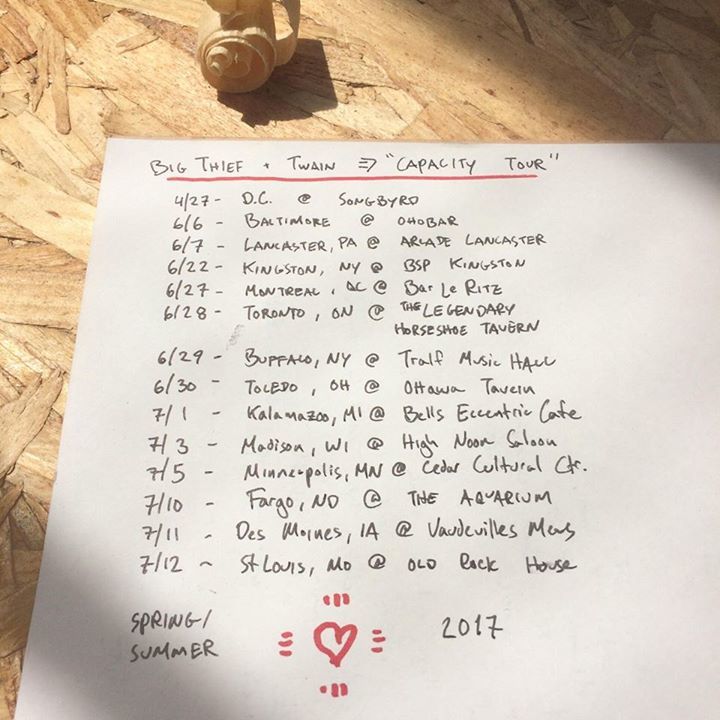 BIG THIEF + TWAIN => "CAPACITY TOUR"
4/27 - D.C. @ SONGBYRD
6/6 - BALTIMORE @ OHOBAR
6/7 - LANCASTER, PA @ ARCADE LANCASTER
6/22 - KINGSTON, NY @ BSP KINGSTON
6/27 - MONTREAL, QC @ Bar Le RITZ
6/28 - TORONTO, ON @ THE LEGENDARY
HORSESHOE TAVERN
6/29 - BUFFALO, NY @ Tralf Music HALL
6/30 - TOLEDO, OH @ Ottawa Tavern
7/1 - Kalamazoo, MI @ Bells Eccentric Cafe
7/3 - Madison, WI @ High Noon Saloon
7/5 - Minneapolis, MN @ Cedar Cultural Ctr.
7/10 - Fargo, ND @ THE AQUARIUM
7/11 - Des Moines, IA @ Vaudevilles Mews
7/12 ~ St Louis, MO @ OLD Rock House
SPRING/
SUMMER
2017